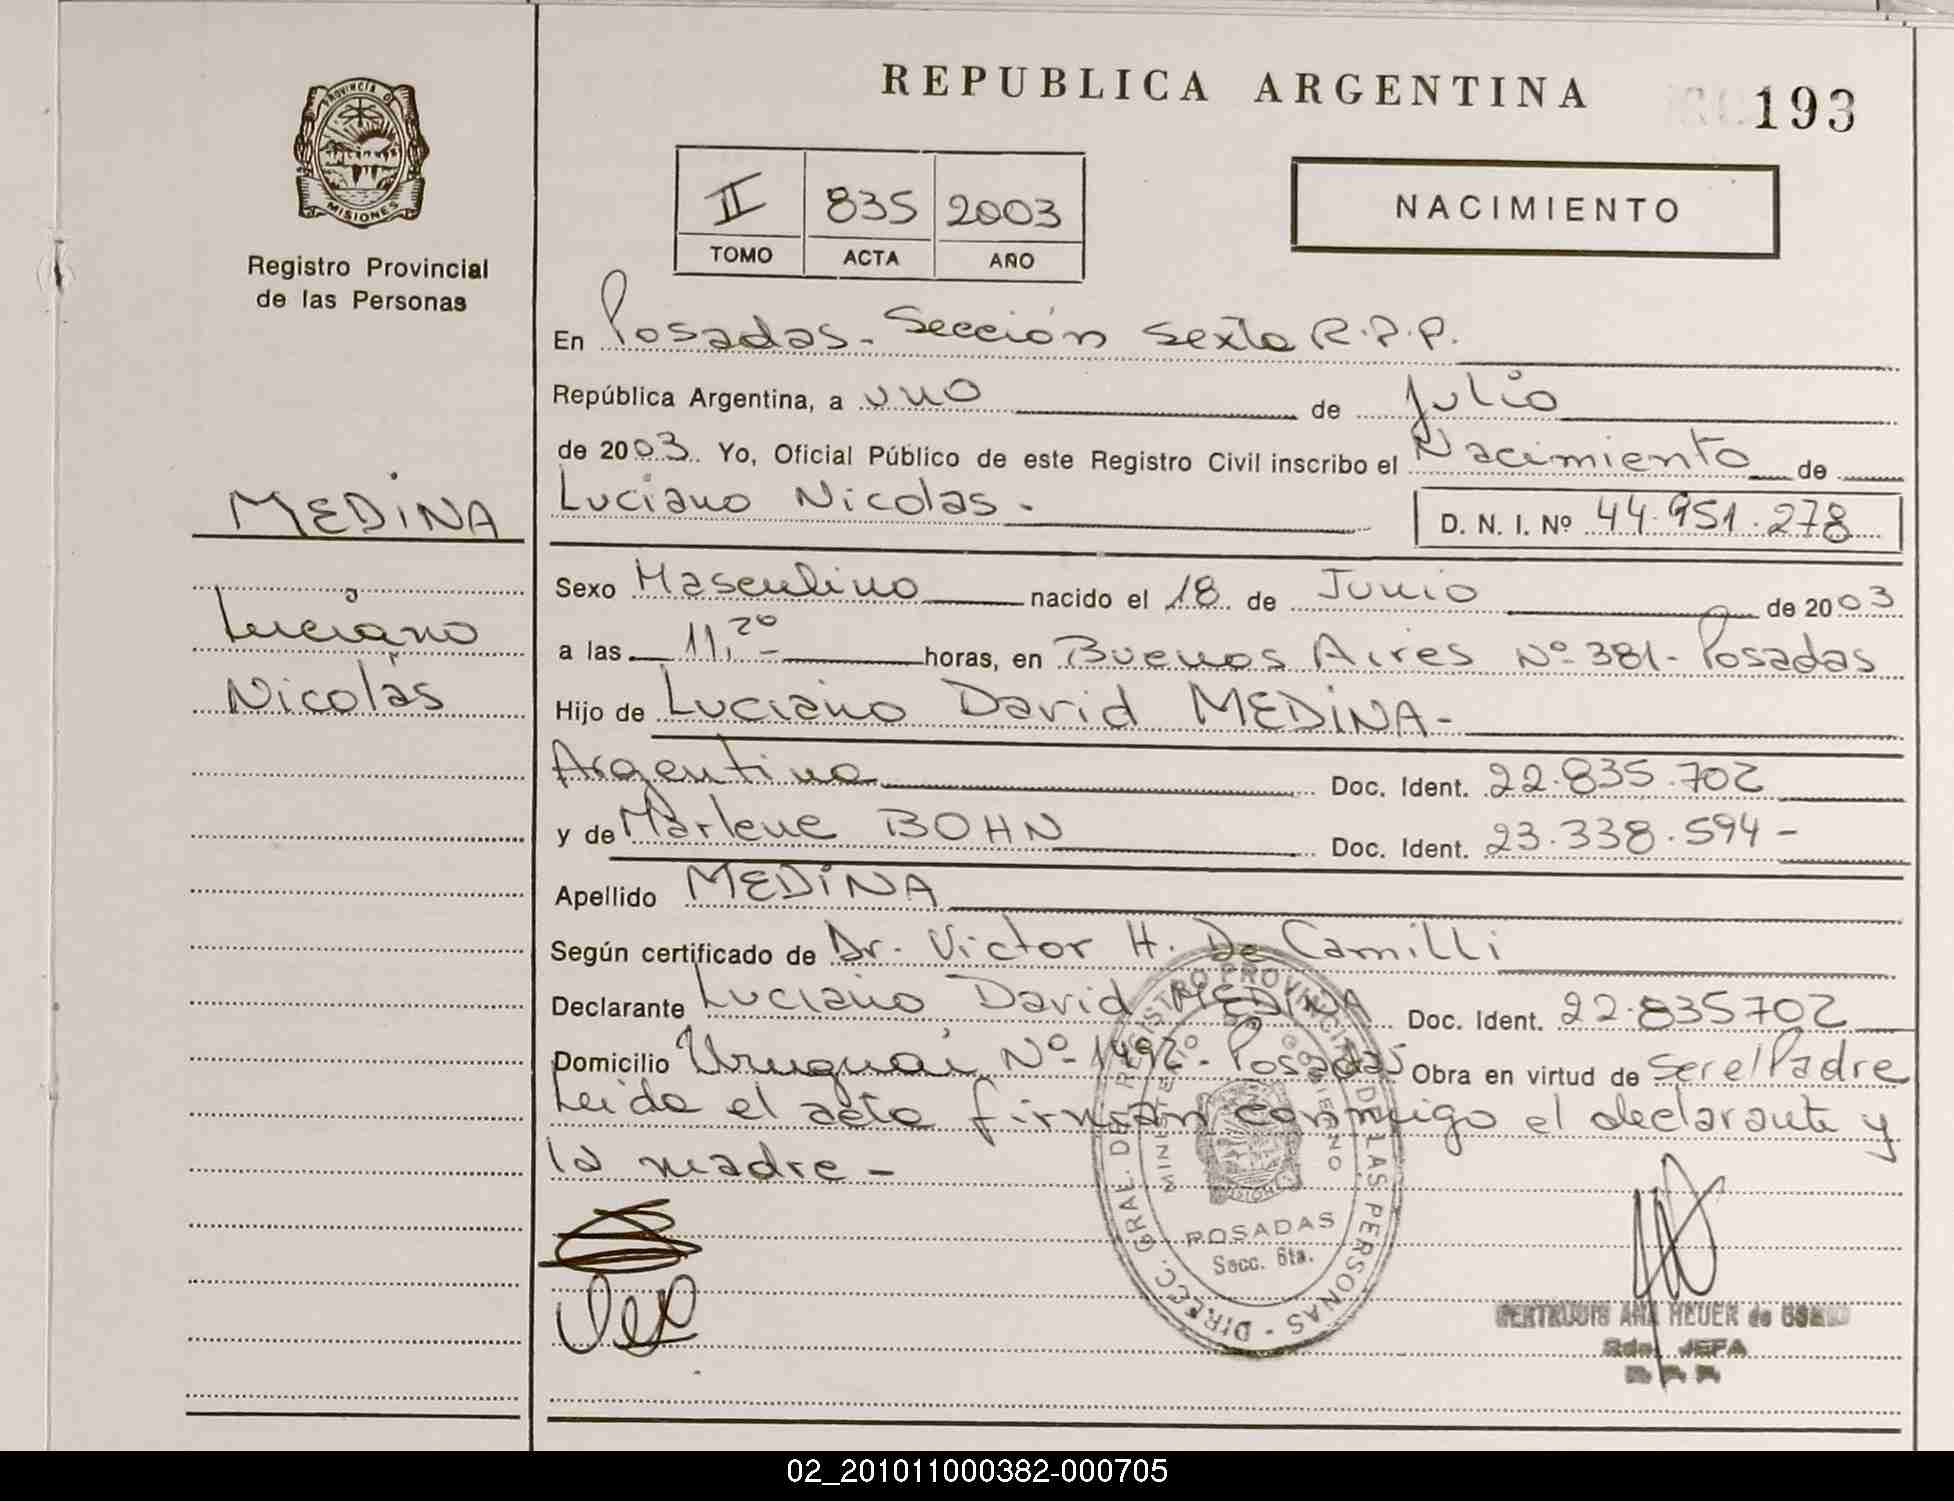 REPUBLICA ARGENTINA
193
PROVINCIA DE
MISIONES
Registro Provincial
de las Personas
II 835 2003
TOMO ACTA AÑO
NACIMIENTO
En Posadas - Sección Sexta R.P.P.
República Argentina, a uno de Julio
de 2003. Yo, Oficial Público de este Registro Civil inscribo el Nacimiento de
Luciano Nicolas - D. N. I. Nº 44.951.278
MEDiNA
Luciano
Nicolás
Sexo Masculino nacido el 18 de Junio de 2003
a las horas, en Buenos Aires Nº 381 - Posadas
Hijo de Luciano David MEDiNA -
Argentino Doc. Ident. 22.835.702
y de Marlene BOHN Doc. Ident. 23.338.594 -
Apellido MEDiNA
Según certificado de Dr. Victor H. De Camilli
Declarante Luciano David MEDiNA Doc. Ident. 22.835702
Domicilio Uruguai Nº 1492 - Posadas Obra en virtud de ser el Padre
Leida el acta firman conmigo el declarante y
la madre -
DIREC. GRAL. DEL REGISTRO PROVINCIAL DE LAS PERSONAS -
MINISTERIO DE GOBIERNO
MISIONES
POSADAS
Secc. 6ta.
GERTRUDIS ANA HEUER de
JEFA
02_201011000382-000705